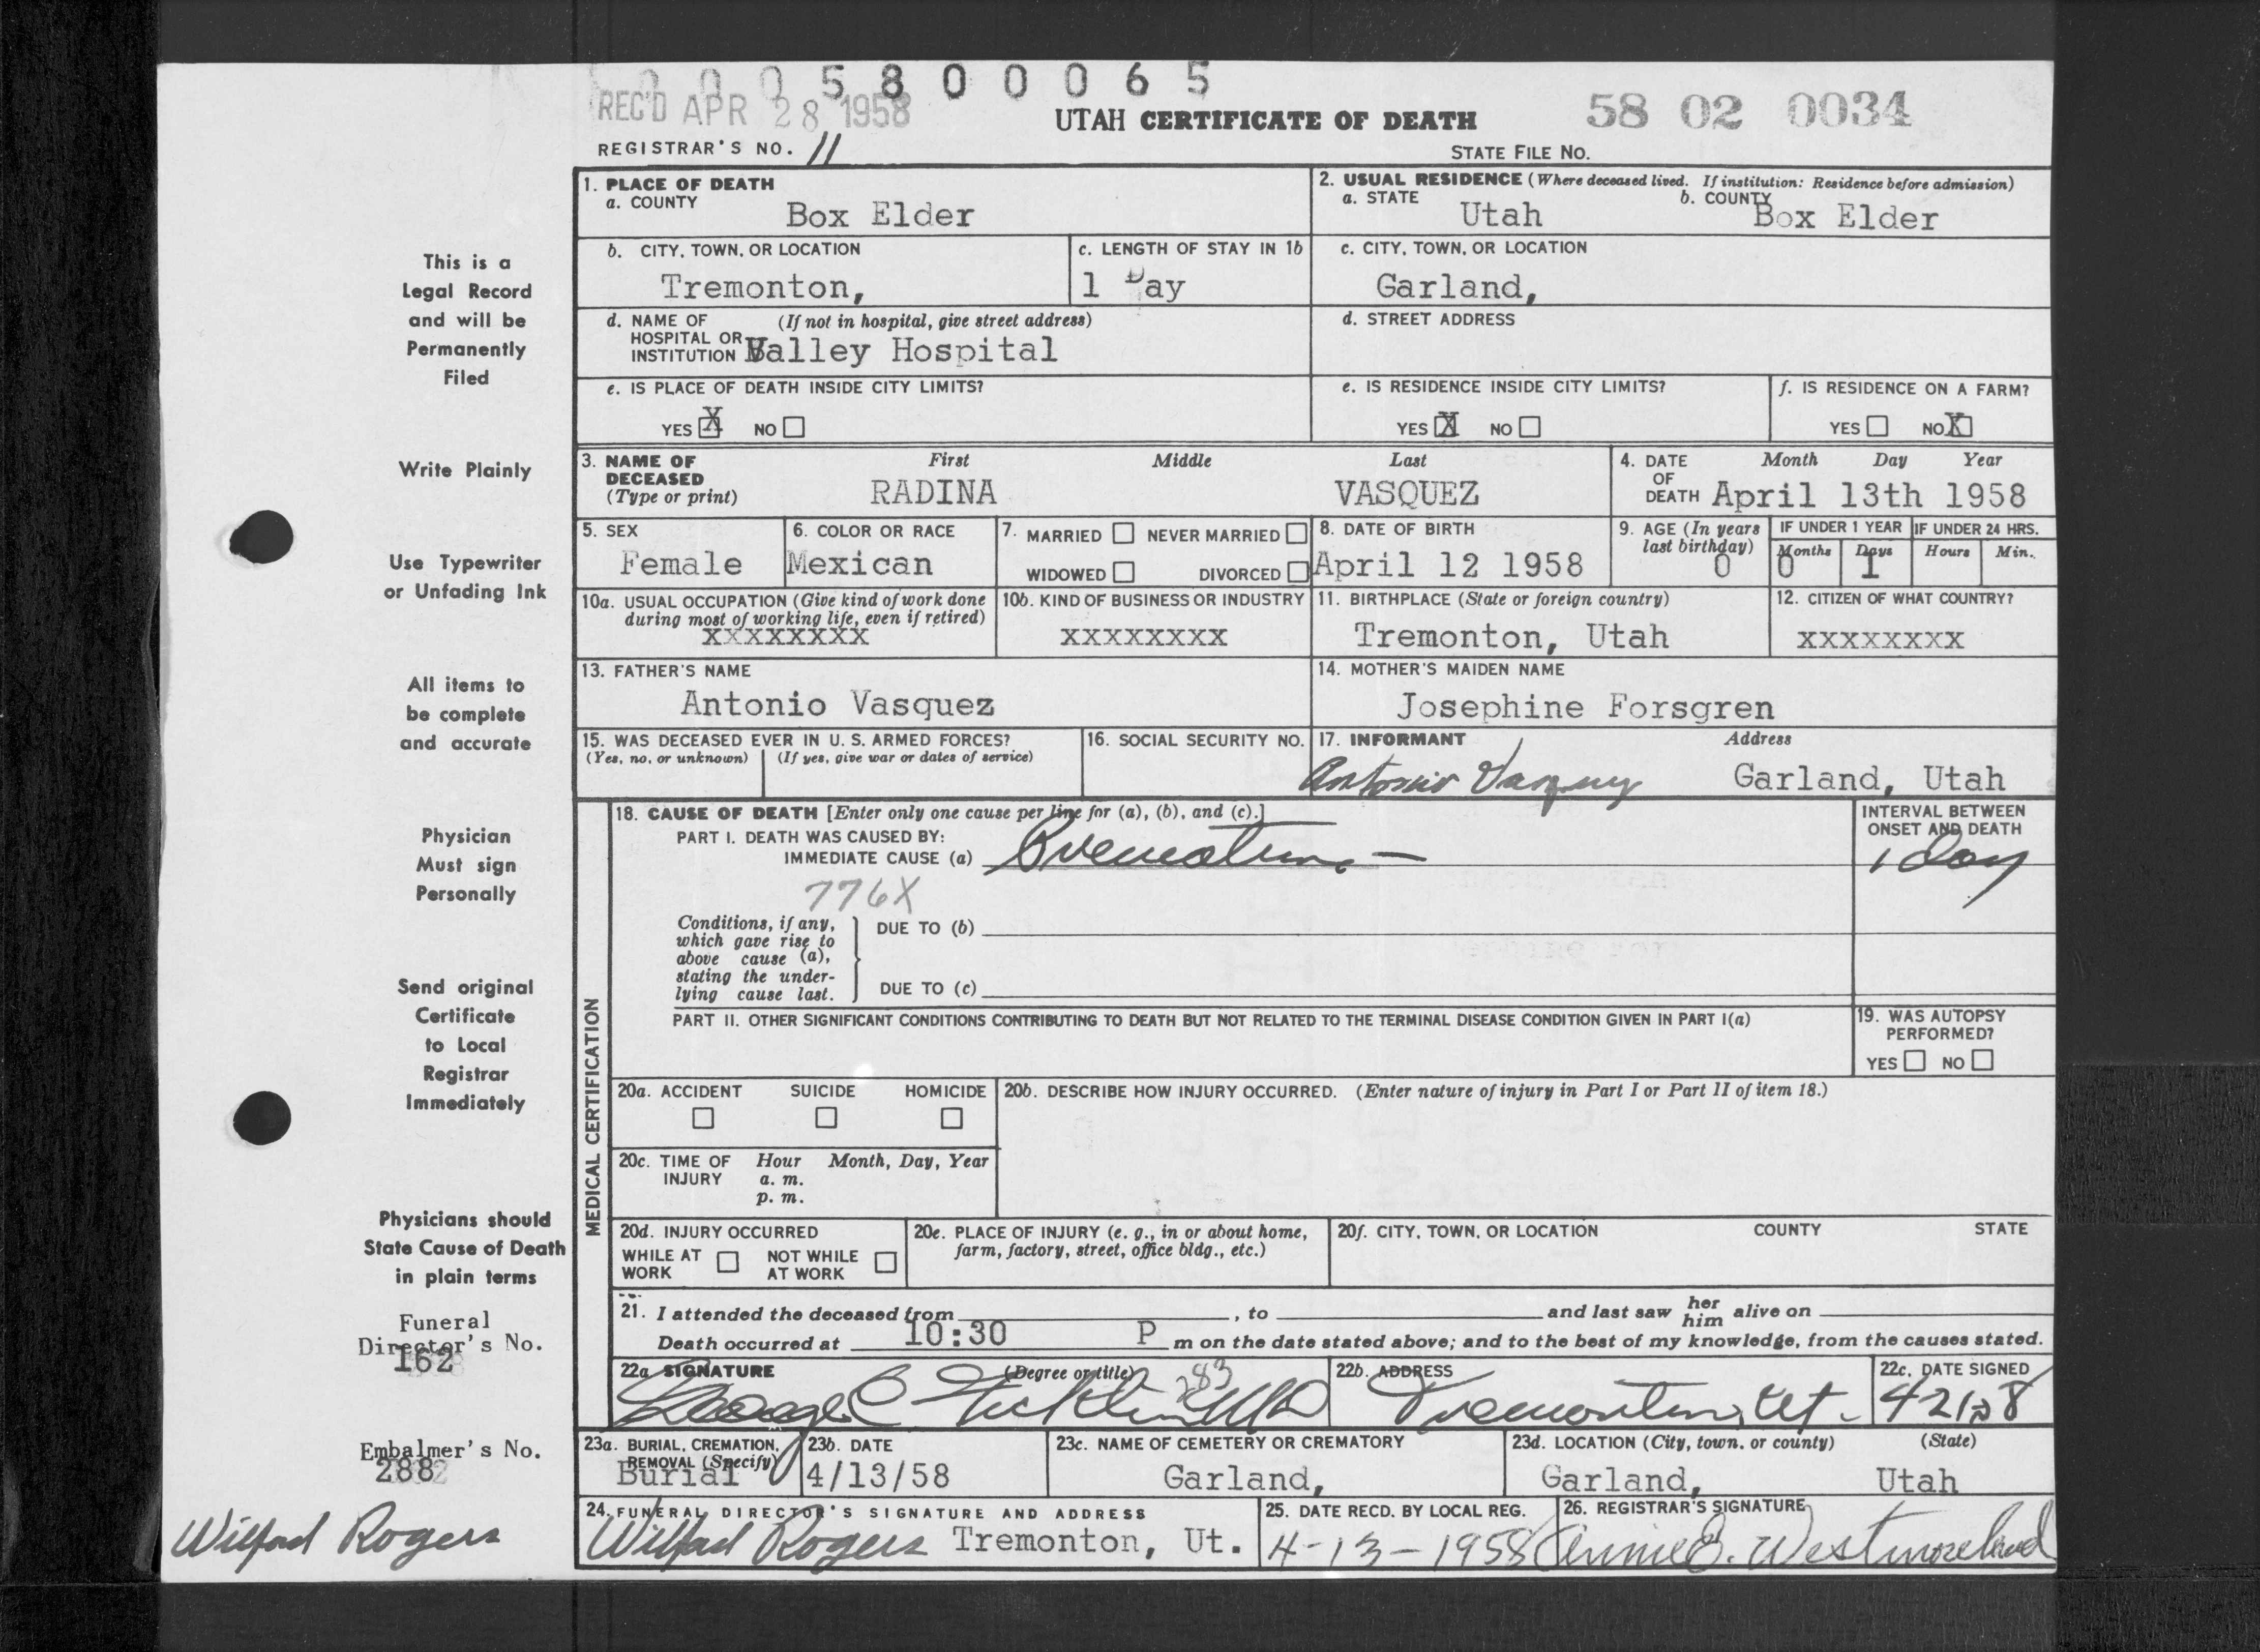 0 0 0 5 8 0 0 0 6 5
REC'D APR 28 1958
UTAH CERTIFICATE OF DEATH
58 02 0034
REGISTRAR'S NO. 11
STATE FILE NO.
This is a
Legal Record
and will be
Permanently
Filed
Write Plainly
Use Typewriter
or Unfading Ink
All items to
be complete
and accurate
Physician
Must sign
Personally
Send original
Certificate
to Local
Registrar
Immediately
Physicians should
State Cause of Death
in plain terms
Funeral
Director's No.
162
Embalmer's No.
288
Wilford Rogers
1. PLACE OF DEATH
a. COUNTY
Box Elder
2. USUAL RESIDENCE (Where deceased lived. If institution: Residence before admission)
a. STATE
Utah
b. COUNTY
Box Elder
b. CITY, TOWN, OR LOCATION
Tremonton,
c. LENGTH OF STAY IN 1b
1 Day
c. CITY, TOWN, OR LOCATION
Garland,
d. NAME OF (If not in hospital, give street address)
HOSPITAL OR
INSTITUTION Valley Hospital
d. STREET ADDRESS
e. IS PLACE OF DEATH INSIDE CITY LIMITS?
YES X NO
e. IS RESIDENCE INSIDE CITY LIMITS?
YES X NO
f. IS RESIDENCE ON A FARM?
YES NO X
3. NAME OF
DECEASED
(Type or print)
First Middle Last
RADINA VASQUEZ
4. DATE
OF
DEATH
Month Day Year
April 13th 1958
5. SEX
Female
6. COLOR OR RACE
Mexican
7. MARRIED NEVER MARRIED
WIDOWED DIVORCED
8. DATE OF BIRTH
April 12 1958
9. AGE (In years
last birthday)
0
IF UNDER 1 YEAR
Months Days
0 1
IF UNDER 24 HRS.
Hours Min.
10a. USUAL OCCUPATION (Give kind of work done
during most of working life, even if retired)
XXXXXXXX
10b. KIND OF BUSINESS OR INDUSTRY
XXXXXXXX
11. BIRTHPLACE (State or foreign country)
Tremonton, Utah
12. CITIZEN OF WHAT COUNTRY?
XXXXXXXX
13. FATHER'S NAME
Antonio Vasquez
14. MOTHER'S MAIDEN NAME
Josephine Forsgren
15. WAS DECEASED EVER IN U. S. ARMED FORCES?
(Yes, no, or unknown) (If yes, give war or dates of service)
16. SOCIAL SECURITY NO.
17. INFORMANT Address
Antonio Vasquez Garland, Utah
MEDICAL CERTIFICATION
18. CAUSE OF DEATH [Enter only one cause per line for (a), (b), and (c).]
PART I. DEATH WAS CAUSED BY:
IMMEDIATE CAUSE (a)
776X
INTERVAL BETWEEN
ONSET AND DEATH
1 day
Conditions, if any,
which gave rise to
above cause (a),
stating the under-
lying cause last.
DUE TO (b)
DUE TO (c)
PART II. OTHER SIGNIFICANT CONDITIONS CONTRIBUTING TO DEATH BUT NOT RELATED TO THE TERMINAL DISEASE CONDITION GIVEN IN PART I(a)
19. WAS AUTOPSY
PERFORMED?
YES NO
20a. ACCIDENT SUICIDE HOMICIDE
20b. DESCRIBE HOW INJURY OCCURRED. (Enter nature of injury in Part I or Part II of item 18.)
20c. TIME OF
INJURY
Hour Month, Day, Year
a. m.
p. m.
20d. INJURY OCCURRED
WHILE AT
WORK
NOT WHILE
AT WORK
20e. PLACE OF INJURY (e. g., in or about home,
farm, factory, street, office bldg., etc.)
20f. CITY, TOWN, OR LOCATION COUNTY STATE
21. I attended the deceased from , to and last saw her him alive on
Death occurred at 10:30 P m on the date stated above; and to the best of my knowledge, from the causes stated.
22a. SIGNATURE (Degree or title)
George C MD
283
22b. ADDRESS
Tremonton, Ut.
22c. DATE SIGNED
23a. BURIAL, CREMATION,
REMOVAL (Specify)
Burial
23b. DATE
4/13/58
23c. NAME OF CEMETERY OR CREMATORY
Garland,
23d. LOCATION (City, town, or county) (State)
Garland, Utah
24. FUNERAL DIRECTOR'S SIGNATURE AND ADDRESS
Wilford Rogers Tremonton, Ut.
25. DATE RECD. BY LOCAL REG.
4-13-1958
26. REGISTRAR'S SIGNATURE
Westmoreland